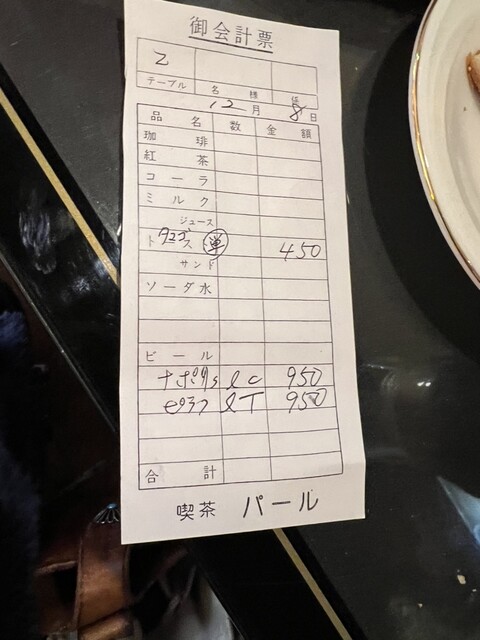 御会計票
2
テーブル 名 様 係
12月 8日
品 名 数 金 額
珈 琲
紅 茶
コ ー ラ
ミ ル ク
ジュース
ト ス 単 450
サンド
ソーダ水
ビ ー ル
ナポリ s l c 950
ピラフ l T 950
合 計
喫茶 パール